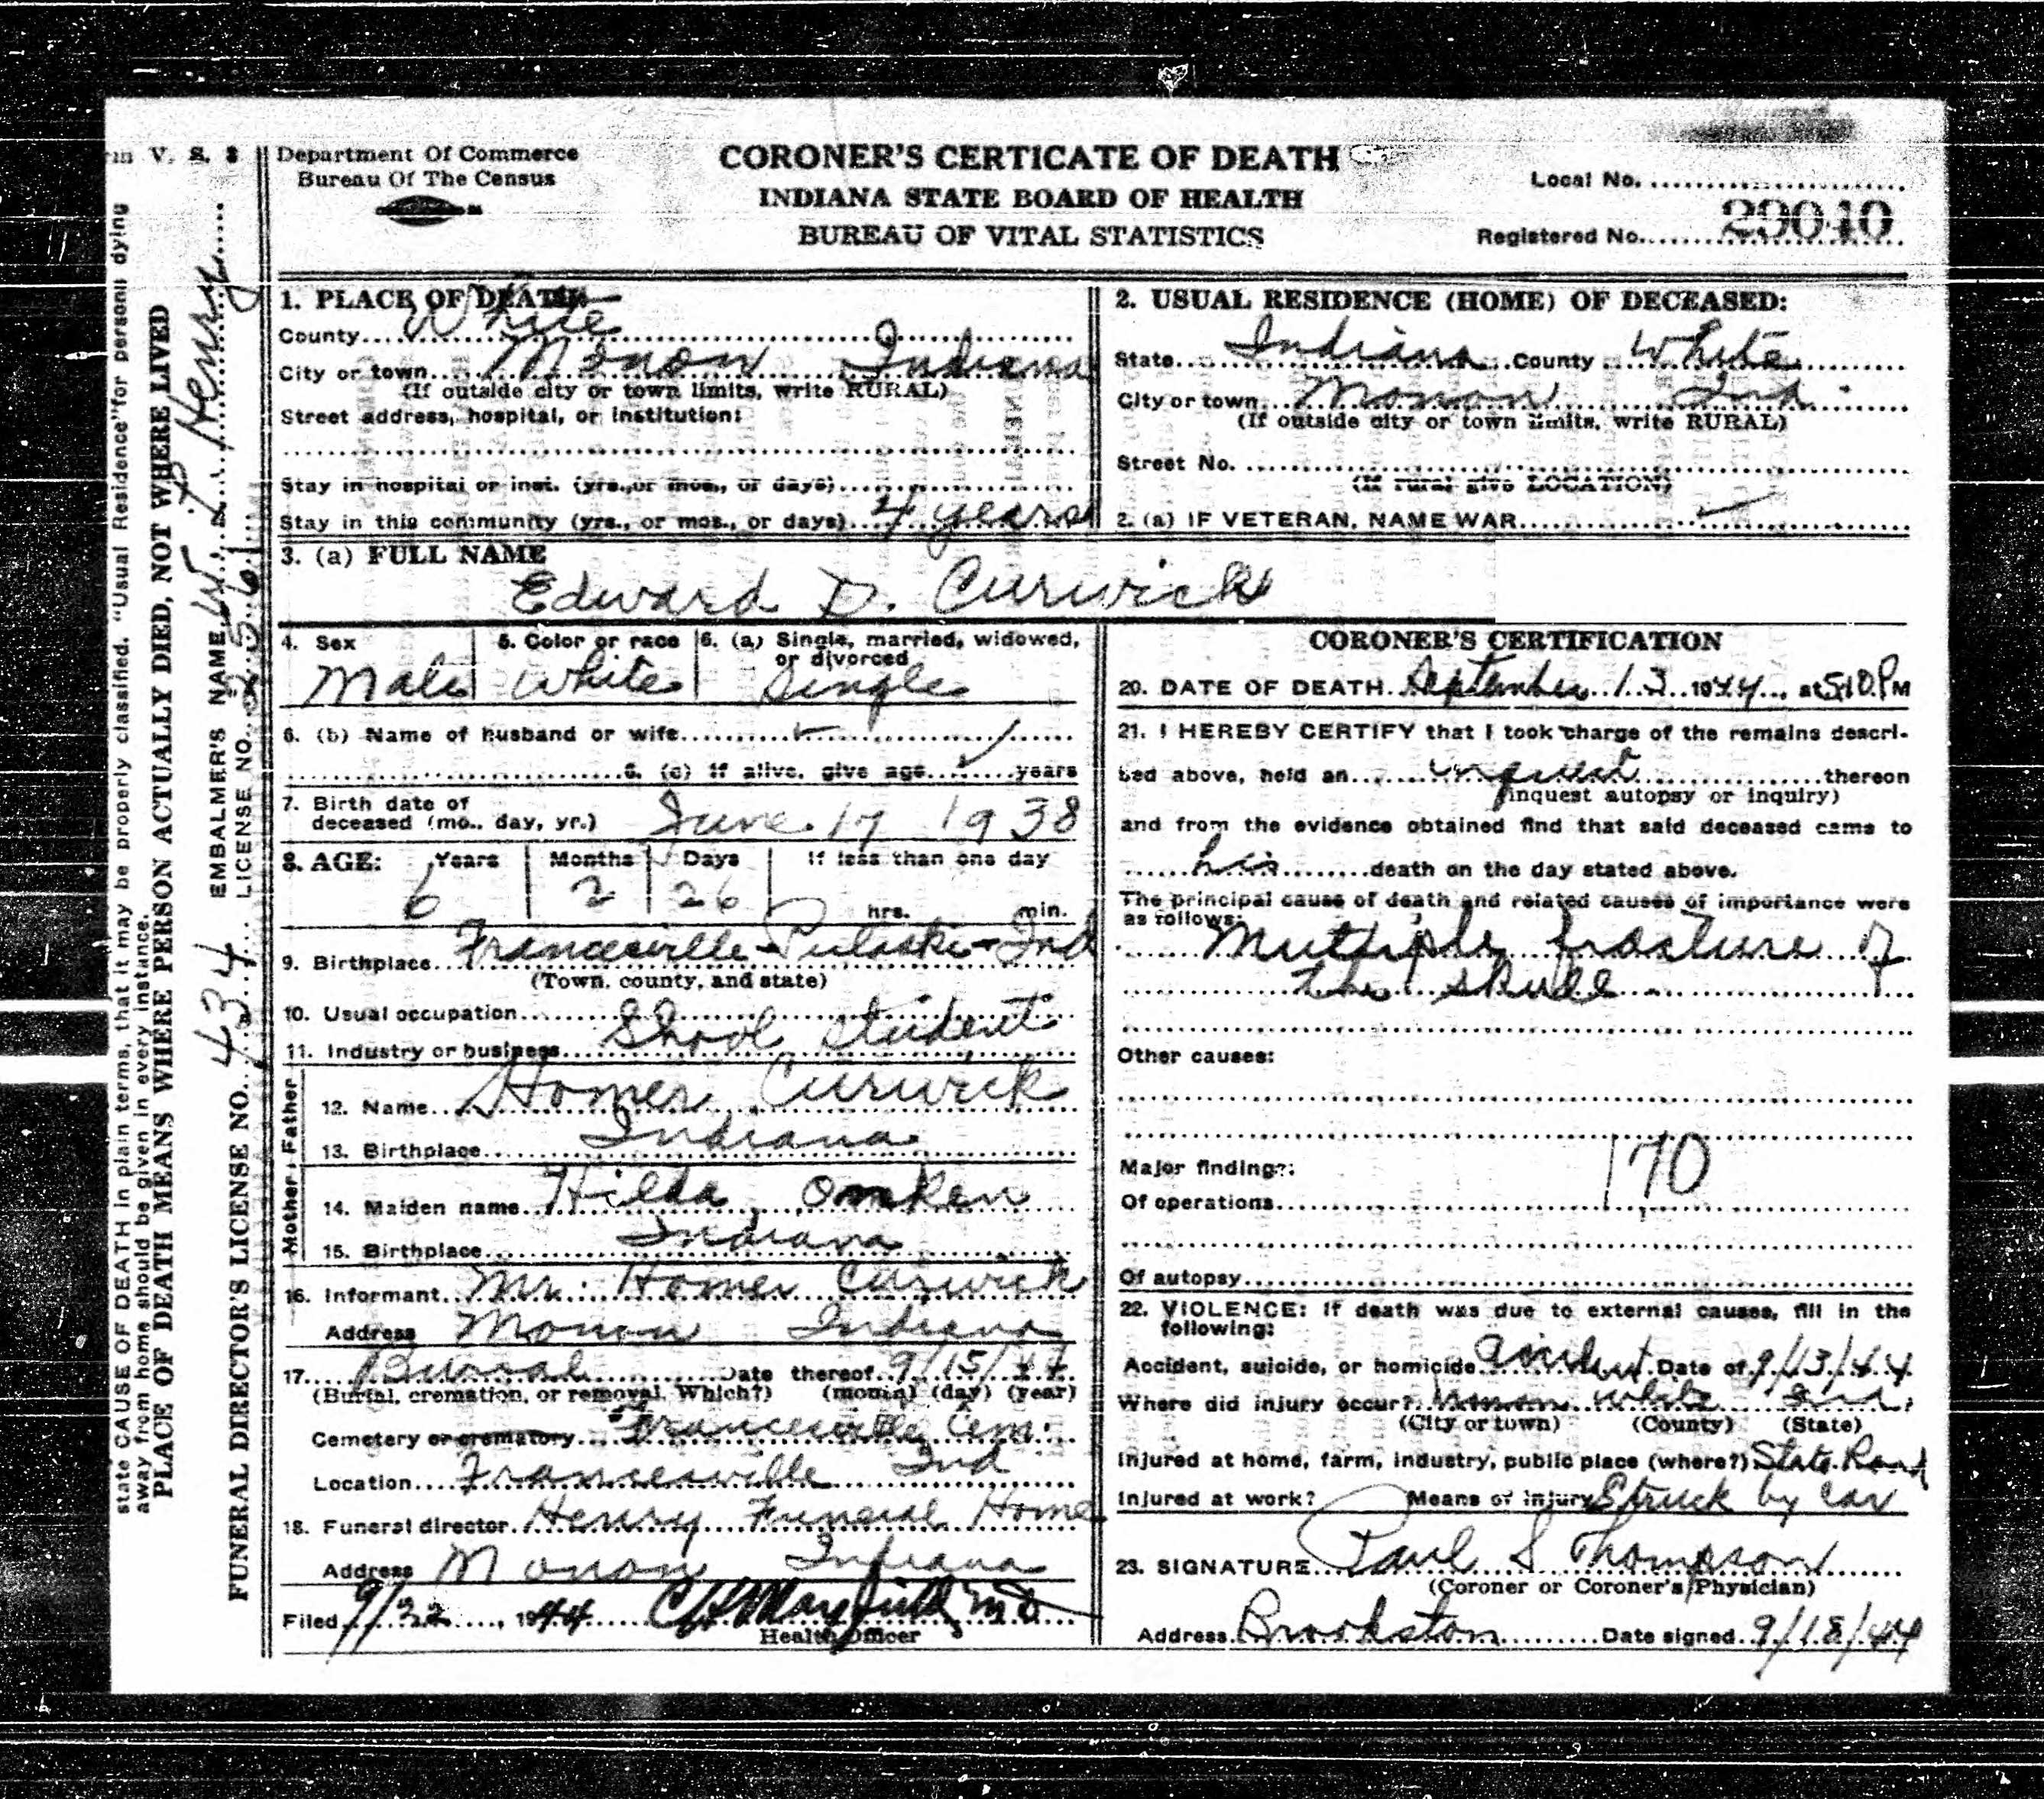 m V. S. 3
Department Of Commerce
Bureau Of The Census
CORONER'S CERTICATE OF DEATH
INDIANA STATE BOARD OF HEALTH
BUREAU OF VITAL STATISTICS
Local No.
Registered No. 29040
state CAUSE OF DEATH in plain terms, that it may be properly classified. "Usual Residence" for persons dying
away from home should be given in every instance.
PLACE OF DEATH MEANS WHERE PERSON ACTUALLY DIED, NOT WHERE LIVED
EMBALMER'S NAME W. L. Henry
LICENSE NO.
FUNERAL DIRECTOR'S LICENSE NO. 434
1. PLACE OF DEATH
County White
City or town Monon Indiana
(If outside city or town limits, write RURAL)
Street address, hospital, or institution:
Stay in hospital or inst. (yrs., or mos., or days)
Stay in this community (yrs., or mos., or days) 4 years
2. USUAL RESIDENCE (HOME) OF DECEASED:
State Indiana County White
City or town Monon Ind.
(If outside city or town limits, write RURAL)
Street No.
(If rural give LOCATION)
2. (a) IF VETERAN, NAME WAR
3. (a) FULL NAME
Edward D. Curwick
4. Sex Male
5. Color or race White
6. (a) Single, married, widowed, or divorced Single
6. (b) Name of husband or wife
6. (c) If alive, give age years
7. Birth date of
deceased (mo., day, yr.) June 17 1938
8. AGE: Years Months Days If less than one day
6 2 26 hrs. min.
9. Birthplace Francesville - Pulaski - Ind
(Town, county, and state)
10. Usual occupation
11. Industry or business Shool student
Father
12. Name Homer Curwick
13. Birthplace Indiana
Mother
14. Maiden name Hilda Omken
15. Birthplace Indiana
16. Informant Mr. Homer Curwick
Address Monon Indiana
17. Burial Date thereof 9/15/44
(Burial, cremation, or removal, Which?) (month) (day) (year)
Cemetery or crematory Francesville Cem.
Location Francesville Ind
18. Funeral director Henry Funeral Home
Address Monon Indiana
Filed 9/22, 1944 MD
Health Officer
CORONER'S CERTIFICATION
20. DATE OF DEATH September 13 1944, at 5:10 P M
21. I HEREBY CERTIFY that I took charge of the remains descri-
bed above, held an inquest thereon
(inquest autopsy or inquiry)
and from the evidence obtained find that said deceased came to
his death on the day stated above.
The principal cause of death and related causes of importance were
as follows:
Muthiple fracture of
the skull
Other causes:
170
Major finding:
Of operations
Of autopsy
22. VIOLENCE: If death was due to external causes, fill in the
following:
Accident, suicide, or homicide accident Date of 9/13/44
Where did injury occur? Monon White Ind.
(City or town) (County) (State)
Injured at home, farm, industry, public place (where?) State Road
Injured at work? Means of injury Struck by car
23. SIGNATURE Paul S Thompson
(Coroner or Coroner's Physician)
Address Brookston Date signed 9/18/44